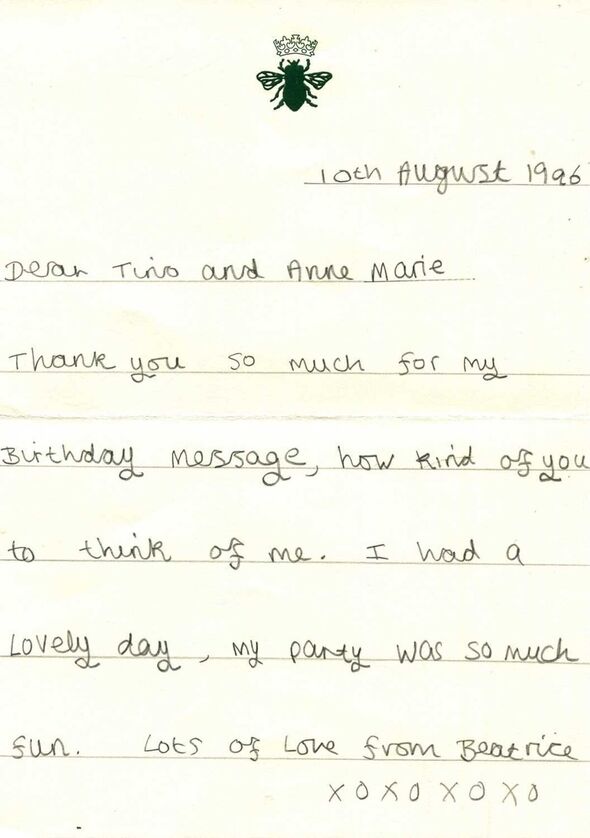 10th August 1996
Dear Tino and Anne Marie
Thank you so much for my
Birthday message, how kind of you
to think of me. I had a
Lovely day, my party was so much
fun. Lots of Love from Beatrice
XOXOXOXO